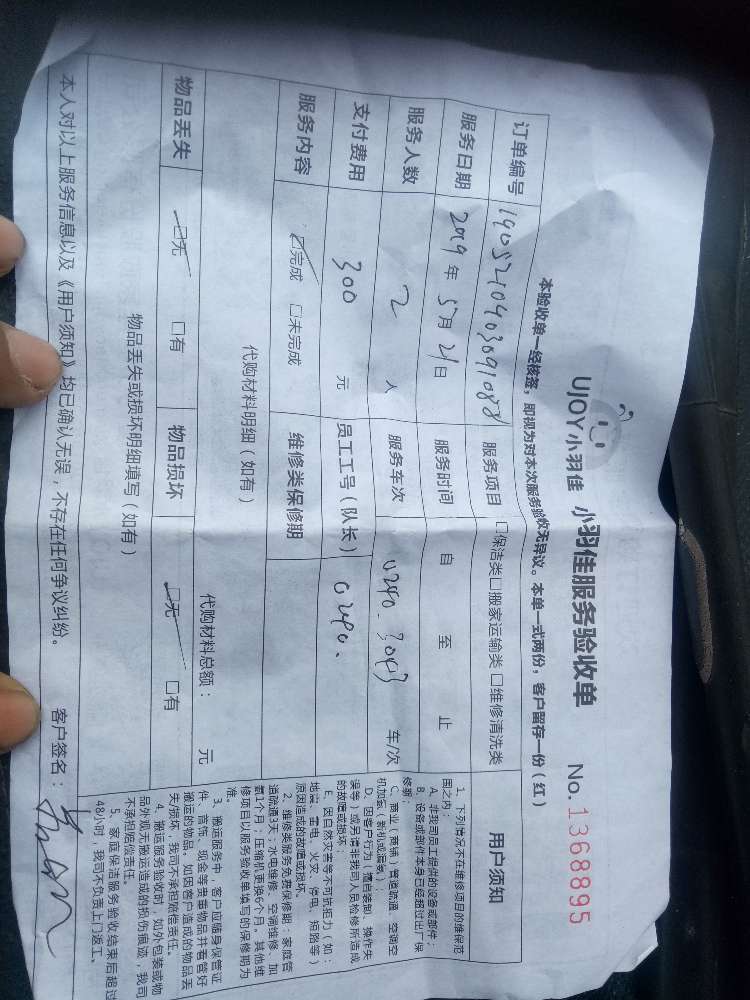 UJOY小羽佳 小羽佳服务验收单 No. 1368895
本验收单一经核签，即视为对本次服务验收无异议。本单一式两份，客户留存一份（红）
订单编号 1905210403091088 服务项目 □保洁类□搬家运输类 □维修清洗类
服务日期 2019 年 5月 21日 服务时间 自 至 止
服务人数 2 人 服务车次 0290. 3043 车/次
支付费用 300 元 员工工号（队长） 0290.
服务内容 ☑完成 □未完成 维修类保修期
代购材料明细（如有）
代购材料总额： 元
物品丢失 ☑无 □有 物品损坏 ☑无 □有
物品丢失或损坏明细填写（如有）
用户须知
1、下列情况不在维修项目的维保范
围之内：
A、非我司员工提供的设备或部件；
B、设备或部件本身已经超过出厂保
修期；
C、商业（商铺）管道疏通、空调空
机加氟（新机或漏氟）；
D、因客户行为（擅自装卸、操作失
误等）或另请非我司人员检修所造成
的故障或损坏；
E、因自然灾害等不可抗拒力（如：
地震、雷电、火灾、停电、短路等）
原因造成的故障或损坏。
2、维修类服务免费保修期：家庭管
道疏通3天；水电维修、空调维修、加
氟1个月；压缩机更换6个月。其他维
修项目以服务验收单填写的保修期为
准。
3、搬运服务中，客户应随身保管证
件、首饰、现金等贵重物品并看管好
搬运的物品，如因客户造成的物品丢
失/损坏，我司不承担赔偿责任。
4、搬运服务验收时，如外包装或物
品外观无搬运造成的损伤痕迹，我司
不承担赔偿责任。
5、家庭保洁服务验收结束后超过
48小时，我司不负责上门返工。
本人对以上服务信息以及《用户须知》均已确认无误，不存在任何争议纠纷。 客户签名：